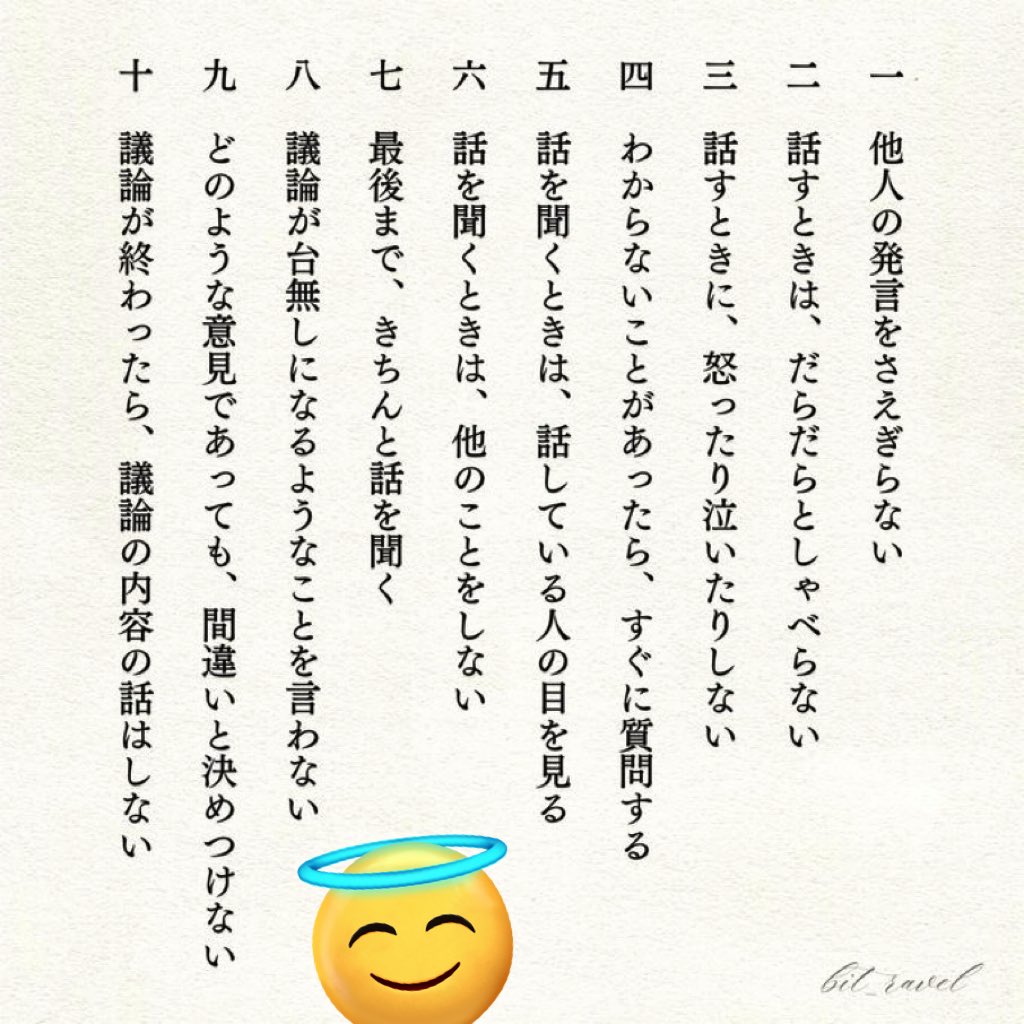 一 他人の発言をさえぎらない
二 話すときは、だらだらとしゃべらない
三 話すときに、怒ったり泣いたりしない
四 わからないことがあったら、すぐに質問する
五 話を聞くときは、話している人の目を見る
六 話を聞くときは、他のことをしない
七 最後まで、きちんと話を聞く
八 議論が台無しになるようなことを言わない
九 どのような意見であっても、間違いと決めつけない
十 議論が終わったら、議論の内容の話はしない
bit_ravel